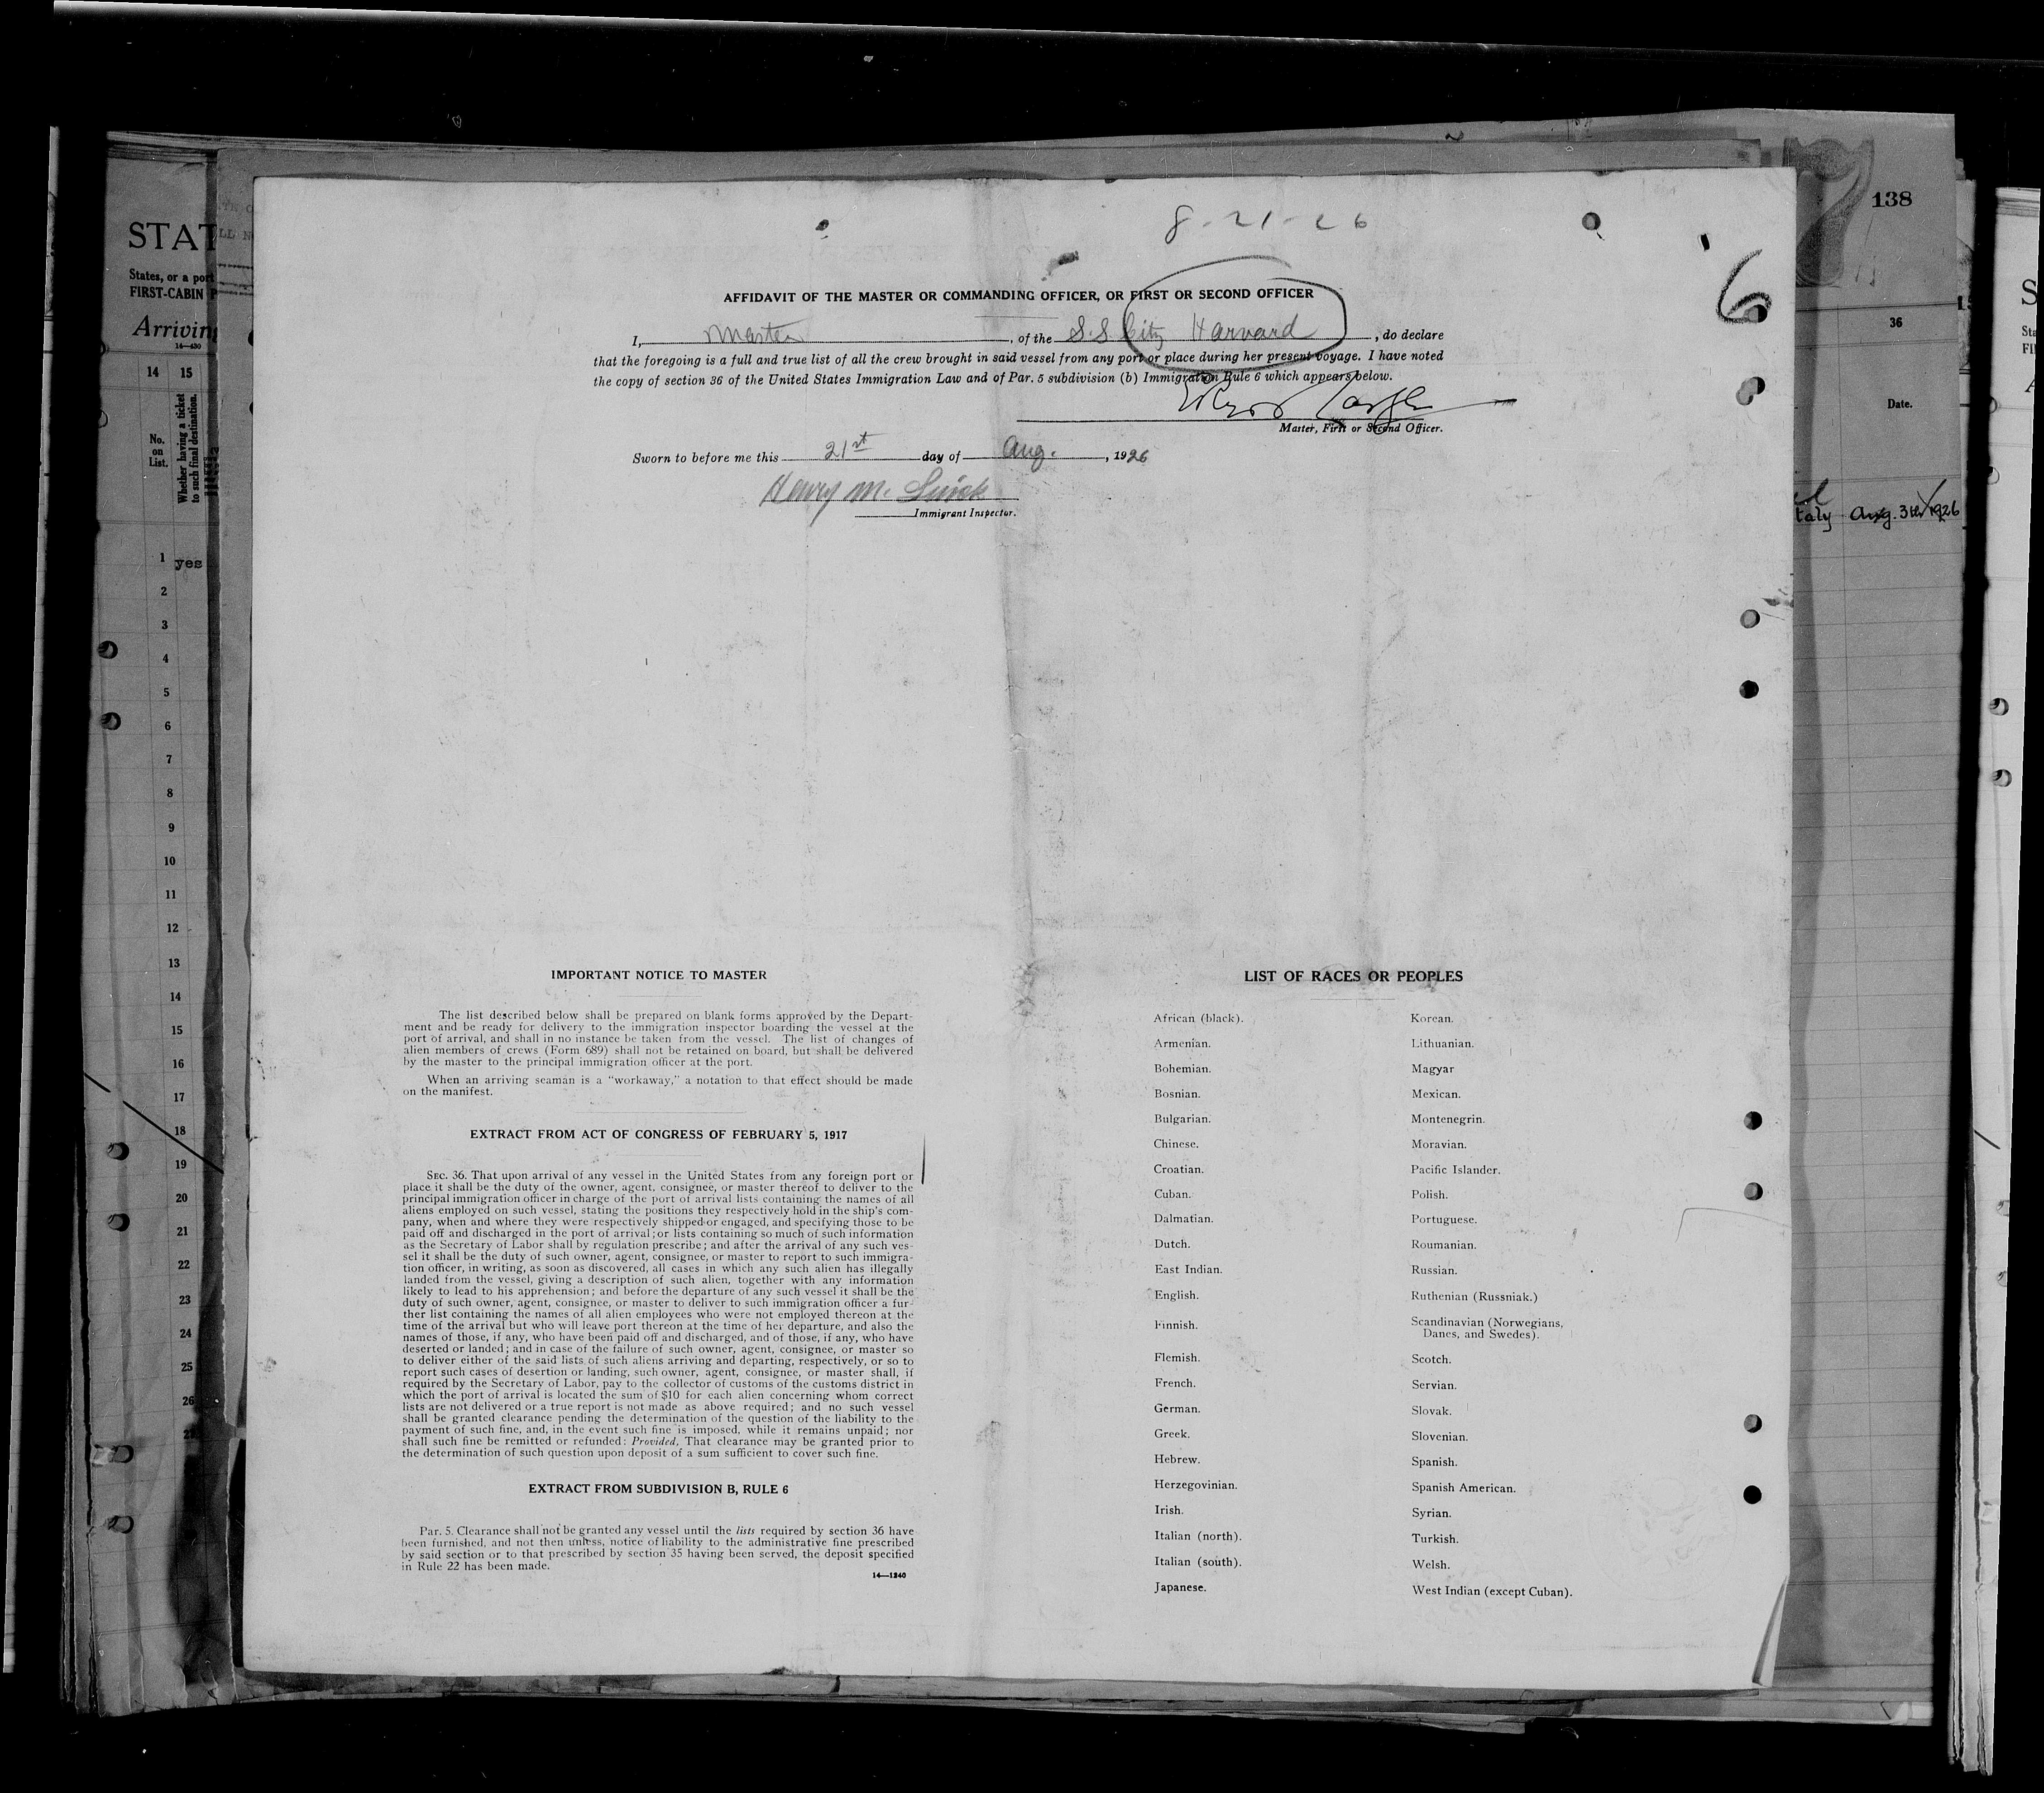 8-21-26
6
138
AFFIDAVIT OF THE MASTER OR COMMANDING OFFICER, OR FIRST OR SECOND OFFICER
I, Master, of the S.S City Harvard, do declare
that the foregoing is a full and true list of all the crew brought in said vessel from any port or place during her present voyage. I have noted
the copy of section 36 of the United States Immigration Law and of Par. 5 subdivision (b) Immigration Rule 6 which appears below.
Master, First or Second Officer.
Sworn to before me this 21st day of Aug., 1926
Henry M.
Immigrant Inspector.
IMPORTANT NOTICE TO MASTER
The list described below shall be prepared on blank forms approved by the Depart-
ment and be ready for delivery to the immigration inspector boarding the vessel at the
port of arrival, and shall in no instance be taken from the vessel. The list of changes of
alien members of crews (Form 689) shall not be retained on board, but shall be delivered
by the master to the principal immigration officer at the port.
When an arriving seaman is a "workaway," a notation to that effect should be made
on the manifest.
EXTRACT FROM ACT OF CONGRESS OF FEBRUARY 5, 1917
SEC. 36. That upon arrival of any vessel in the United States from any foreign port or
place it shall be the duty of the owner, agent, consignee, or master thereof to deliver to the
principal immigration officer in charge of the port of arrival lists containing the names of all
aliens employed on such vessel, stating the positions they respectively hold in the ship's com-
pany, when and where they were respectively shipped or engaged, and specifying those to be
paid off and discharged in the port of arrival; or lists containing so much of such information
as the Secretary of Labor shall by regulation prescribe; and after the arrival of any such ves-
sel it shall be the duty of such owner, agent, consignee, or master to report to such immigra-
tion officer, in writing, as soon as discovered, all cases in which any such alien has illegally
landed from the vessel, giving a description of such alien, together with any information
likely to lead to his apprehension; and before the departure of any such vessel it shall be the
duty of such owner, agent, consignee, or master to deliver to such immigration officer a fur-
ther list containing the names of all alien employees who were not employed thereon at the
time of the arrival but who will leave port thereon at the time of her departure, and also the
names of those, if any, who have been paid off and discharged, and of those, if any, who have
deserted or landed; and in case of the failure of such owner, agent, consignee, or master so
to deliver either of the said lists of such aliens arriving and departing, respectively, or so to
report such cases of desertion or landing, such owner, agent, consignee, or master shall, if
required by the Secretary of Labor, pay to the collector of customs of the customs district in
which the port of arrival is located the sum of $10 for each alien concerning whom correct
lists are not delivered or a true report is not made as above required; and no such vessel
shall be granted clearance pending the determination of the question of the liability to the
payment of such fine, and, in the event such fine is imposed, while it remains unpaid; nor
shall such fine be remitted or refunded: Provided, That clearance may be granted prior to
the determination of such question upon deposit of a sum sufficient to cover such fine.
EXTRACT FROM SUBDIVISION B, RULE 6
Par. 5. Clearance shall not be granted any vessel until the lists required by section 36 have
been furnished, and not then unless, notice of liability to the administrative fine prescribed
by said section or to that prescribed by section 35 having been served, the deposit specified
in Rule 22 has been made.
14—1240
LIST OF RACES OR PEOPLES
African (black).
Armenian.
Bohemian.
Bosnian.
Bulgarian.
Chinese.
Croatian.
Cuban.
Dalmatian.
Dutch.
East Indian.
English.
Finnish.
Flemish.
French.
German.
Greek.
Hebrew.
Herzegovinian.
Irish.
Italian (north).
Italian (south).
Japanese.
Korean.
Lithuanian.
Magyar
Mexican.
Montenegrin.
Moravian.
Pacific Islander.
Polish.
Portuguese.
Roumanian.
Russian.
Ruthenian (Russniak.)
Scandinavian (Norwegians,
Danes, and Swedes).
Scotch.
Servian.
Slovak.
Slovenian.
Spanish.
Spanish American.
Syrian.
Turkish.
Welsh.
West Indian (except Cuban).
STAT
States, or a port
FIRST-CABIN P
Arriving
14—430
14 15
No.
on
List.
Whether having a ticket
to such final destination.
1 yes
2
3
4
5
6
7
8
9
10
11
12
13
14
15
16
17
18
19
20
21
22
23
24
25
26
36
Date.
taly Aug. 3rd 1926